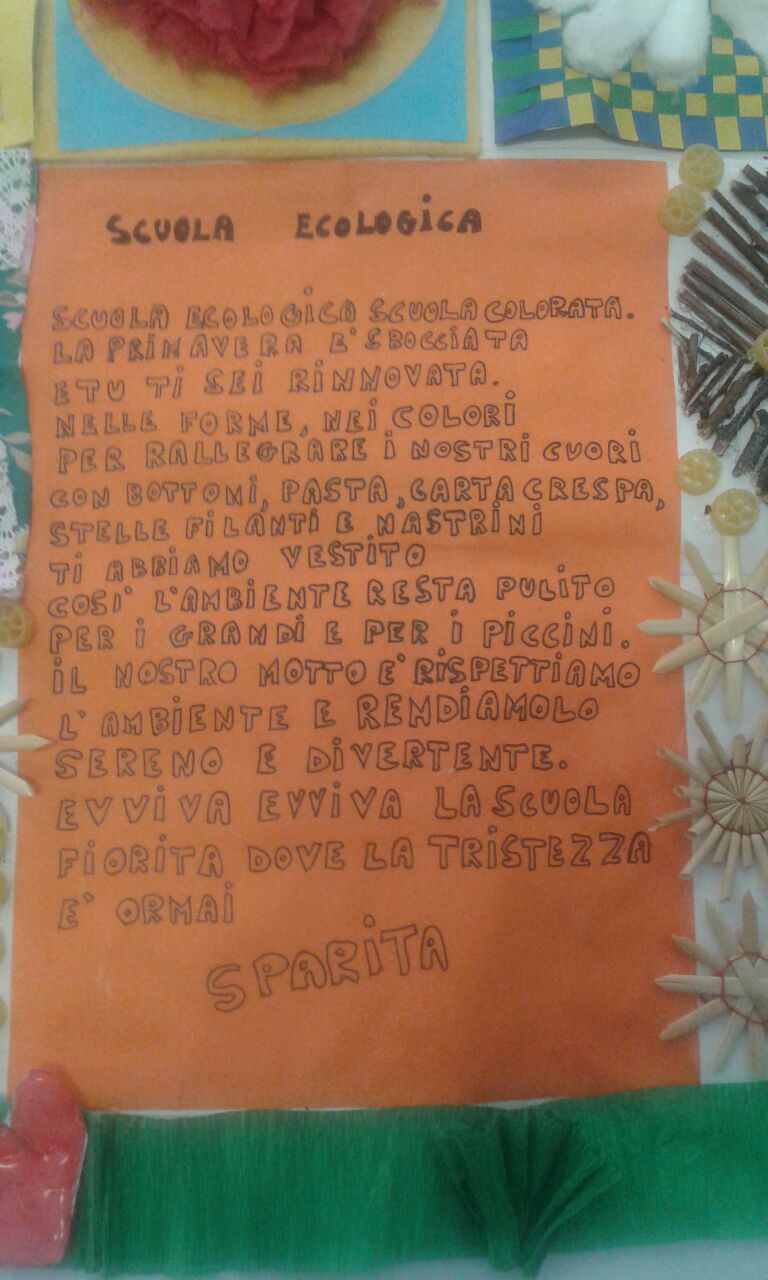 SCUOLA ECOLOGiCA
SCUOLA ECOLOGiCA SCUOLA COLORATA.
LA PRIMAVERA E' SBOCCiATA
E TU Ti SEi RiNNOVATA.
NELLE FORME, NEi COLORi
PER RALLEGRARE i NOSTRi CUORi
CON BOTTONi, PASTA, CARTA CRESPA,
STELLE FiLANTi E NASTRiNi
Ti ABBiAMO VESTiTO
COSi' L'AMBiENTE RESTA PULiTO
PER i GRANDi E PER i PiCCiNi.
iL NOSTRO MOTTO E' RiSPETTiAMO
L'AMBiENTE E RENDiAMOLO
SERENO E DiVERTENTE.
EVViVA EVViVA LA SCUOLA
FiORiTA DOVE LA TRiSTEZZA
E' ORMAi
SPARiTA